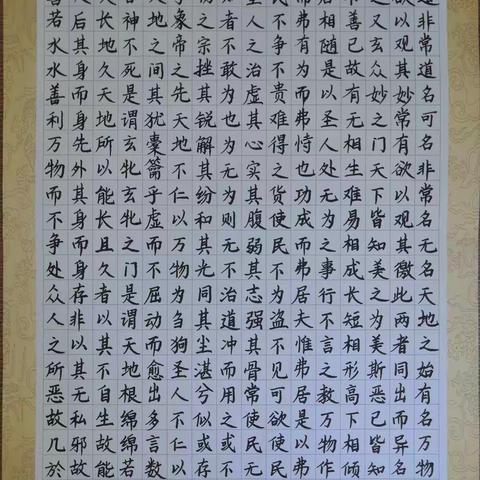 非常道名可名非常名无名天地之始有名万物
以观其妙常有欲以观其徼此两者同出而异名
又玄众妙之门天下皆知美之为美斯恶已皆知
善已故有无相生难易相成长短相形高下相倾
相随是以圣人处无为之事行不言之教万物作
有为而弗恃也功成而弗居夫惟弗居是以弗
争不贵难得之货使民不为盗不见可欲使民
人之治虚其心实其腹弱其志强其骨常使民无
者不敢为也为无为则无不治道冲而用之或不
之宗挫其锐解其纷和其光同其尘湛兮似或存
象帝之先天地不仁以万物为刍狗圣人不仁以
地之间其犹橐籥乎虚而不屈动而愈出多言数
神不死是谓玄牝玄牝之门是谓天地根绵绵若
长地久天地所以能长且久者以其不自生故能
后其身而身先外其身而身存非以其无私邪故
若水水善利万物而不争处众人之所恶故几於